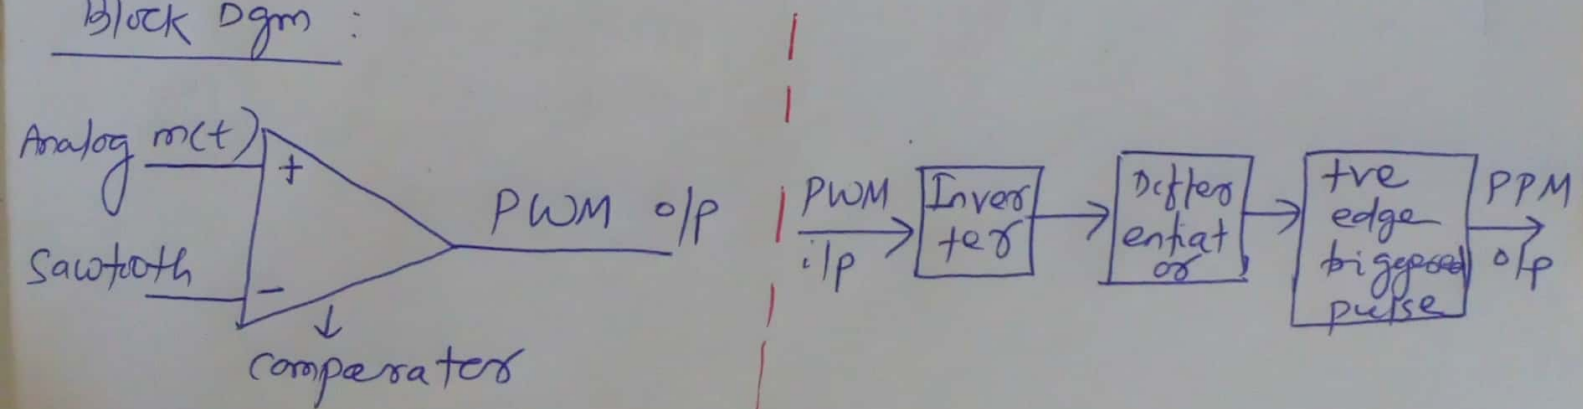 Block Dgm :
Analog m(t)
+
Sawtooth
-
comparator
PWM o/p
PWM
i/p
Inver
ter
Differ
entiat
or
+ve
edge
triggered
pulse
PPM
o/p